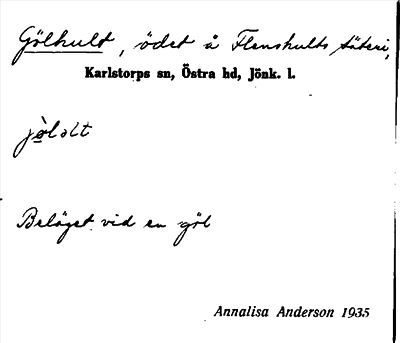 Gölhult, ödet å Flenshults säteri,
Karlstorps sn, Östra hd, Jönk. l.
jö̀lɔlt
Beläget vid en göl
Annalisa Anderson 1935